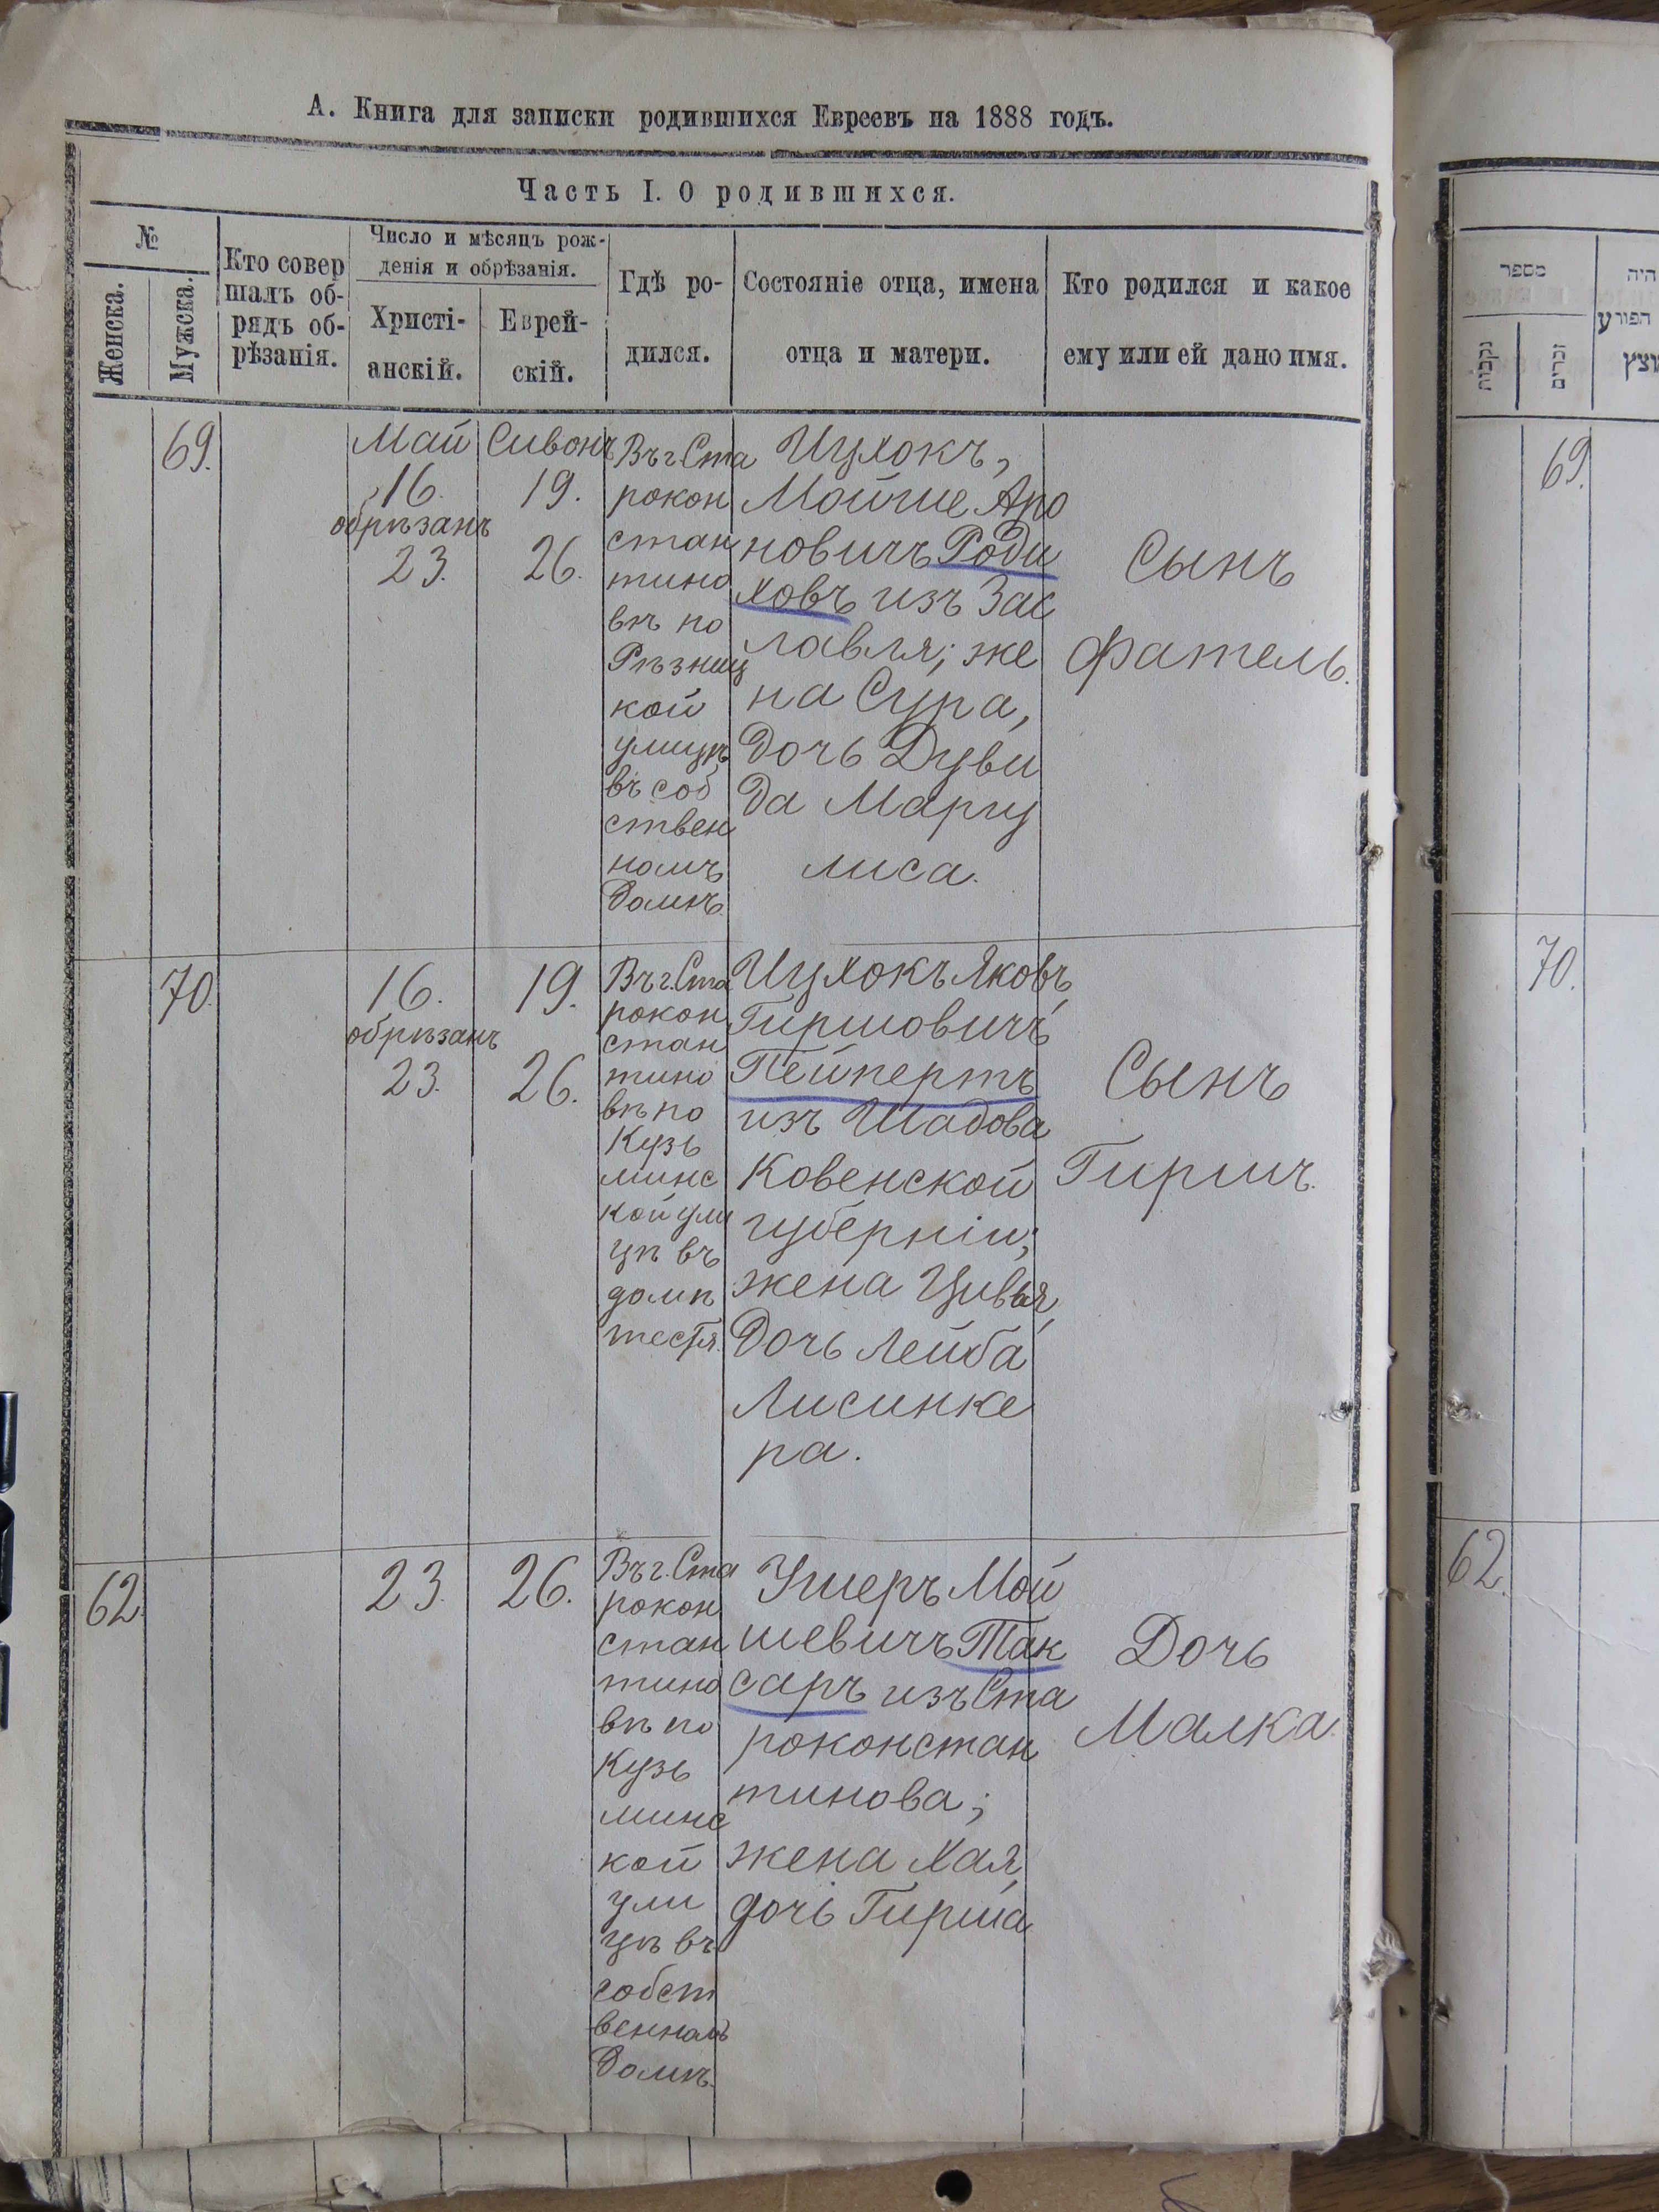 А. Книга для записки родившихся Евреевъ на 1888 годъ.
Часть I. О родившихся.
№
Женска.
Мужска.
Кто совер
шалъ об-
рядъ об-
рѣзанія.
Число и мѣсяцъ рож-
денія и обрѣзанія.
Христі-
анскій.
Еврей-
скій.
Гдѣ ро-
дился.
Состояніе отца, имена
отца и матери.
Кто родился и какое
ему или ей дано имя.
69.
Май
16.
обрѣзанъ
23.
Сивонъ
19.
26.
Въ г. Ста
рокон
стан
тино
вѣ по
Рѣзниц
кой
улицѣ
въ соб
ствен
номъ
домѣ.
Ицхокъ,
Мойше Аро
новичъ Роди
ховъ изъ Зас
лавля; же
на Сура,
дочь Дуви
да Маргу
лиса.
Сынъ
Фатель.
70.
16.
обрѣзанъ
23.
19.
26.
Въ г. Ста
рокон
стан
тино
вѣ по
Кузь
минс
кой ули
цѣ въ
домѣ
тестя.
Ицхокъ Яковъ
Гиршовичъ
Пейпертъ
изъ Шадова
Ковенской
губерніи;
жена Цивья,
дочь Лейба
Лисинке
ра.
Сынъ
Гиршъ.
62.
23.
26.
Въ г. Ста
рокон
стан
тино
вѣ по
Кузь
минс
кой
ули
цѣ въ
собст
венномъ
домѣ.
Ушеръ Мой
шевичъ Так
саръ изъ Ста
роконстан
тинова;
жена Хая,
дочь Гирша
Дочь
Малка.
מספר
נקבות
זכרים
היה
הפורע
מוצץ
69.
70.
62.